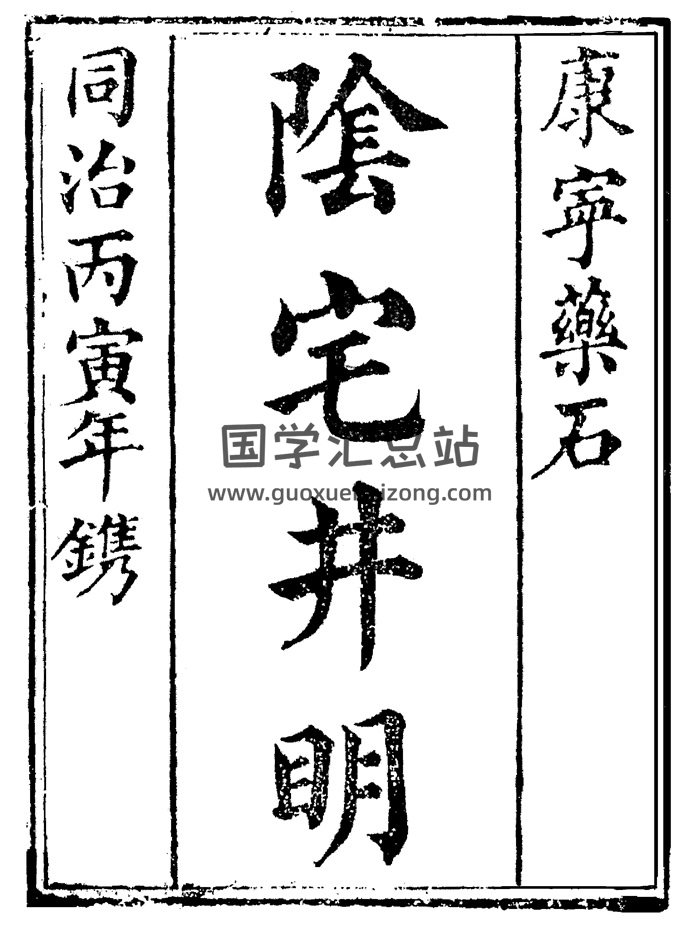 康寧藥石
陰宅井明
同治丙寅年鐫
国学汇总站
www.guoxuehuizong.com